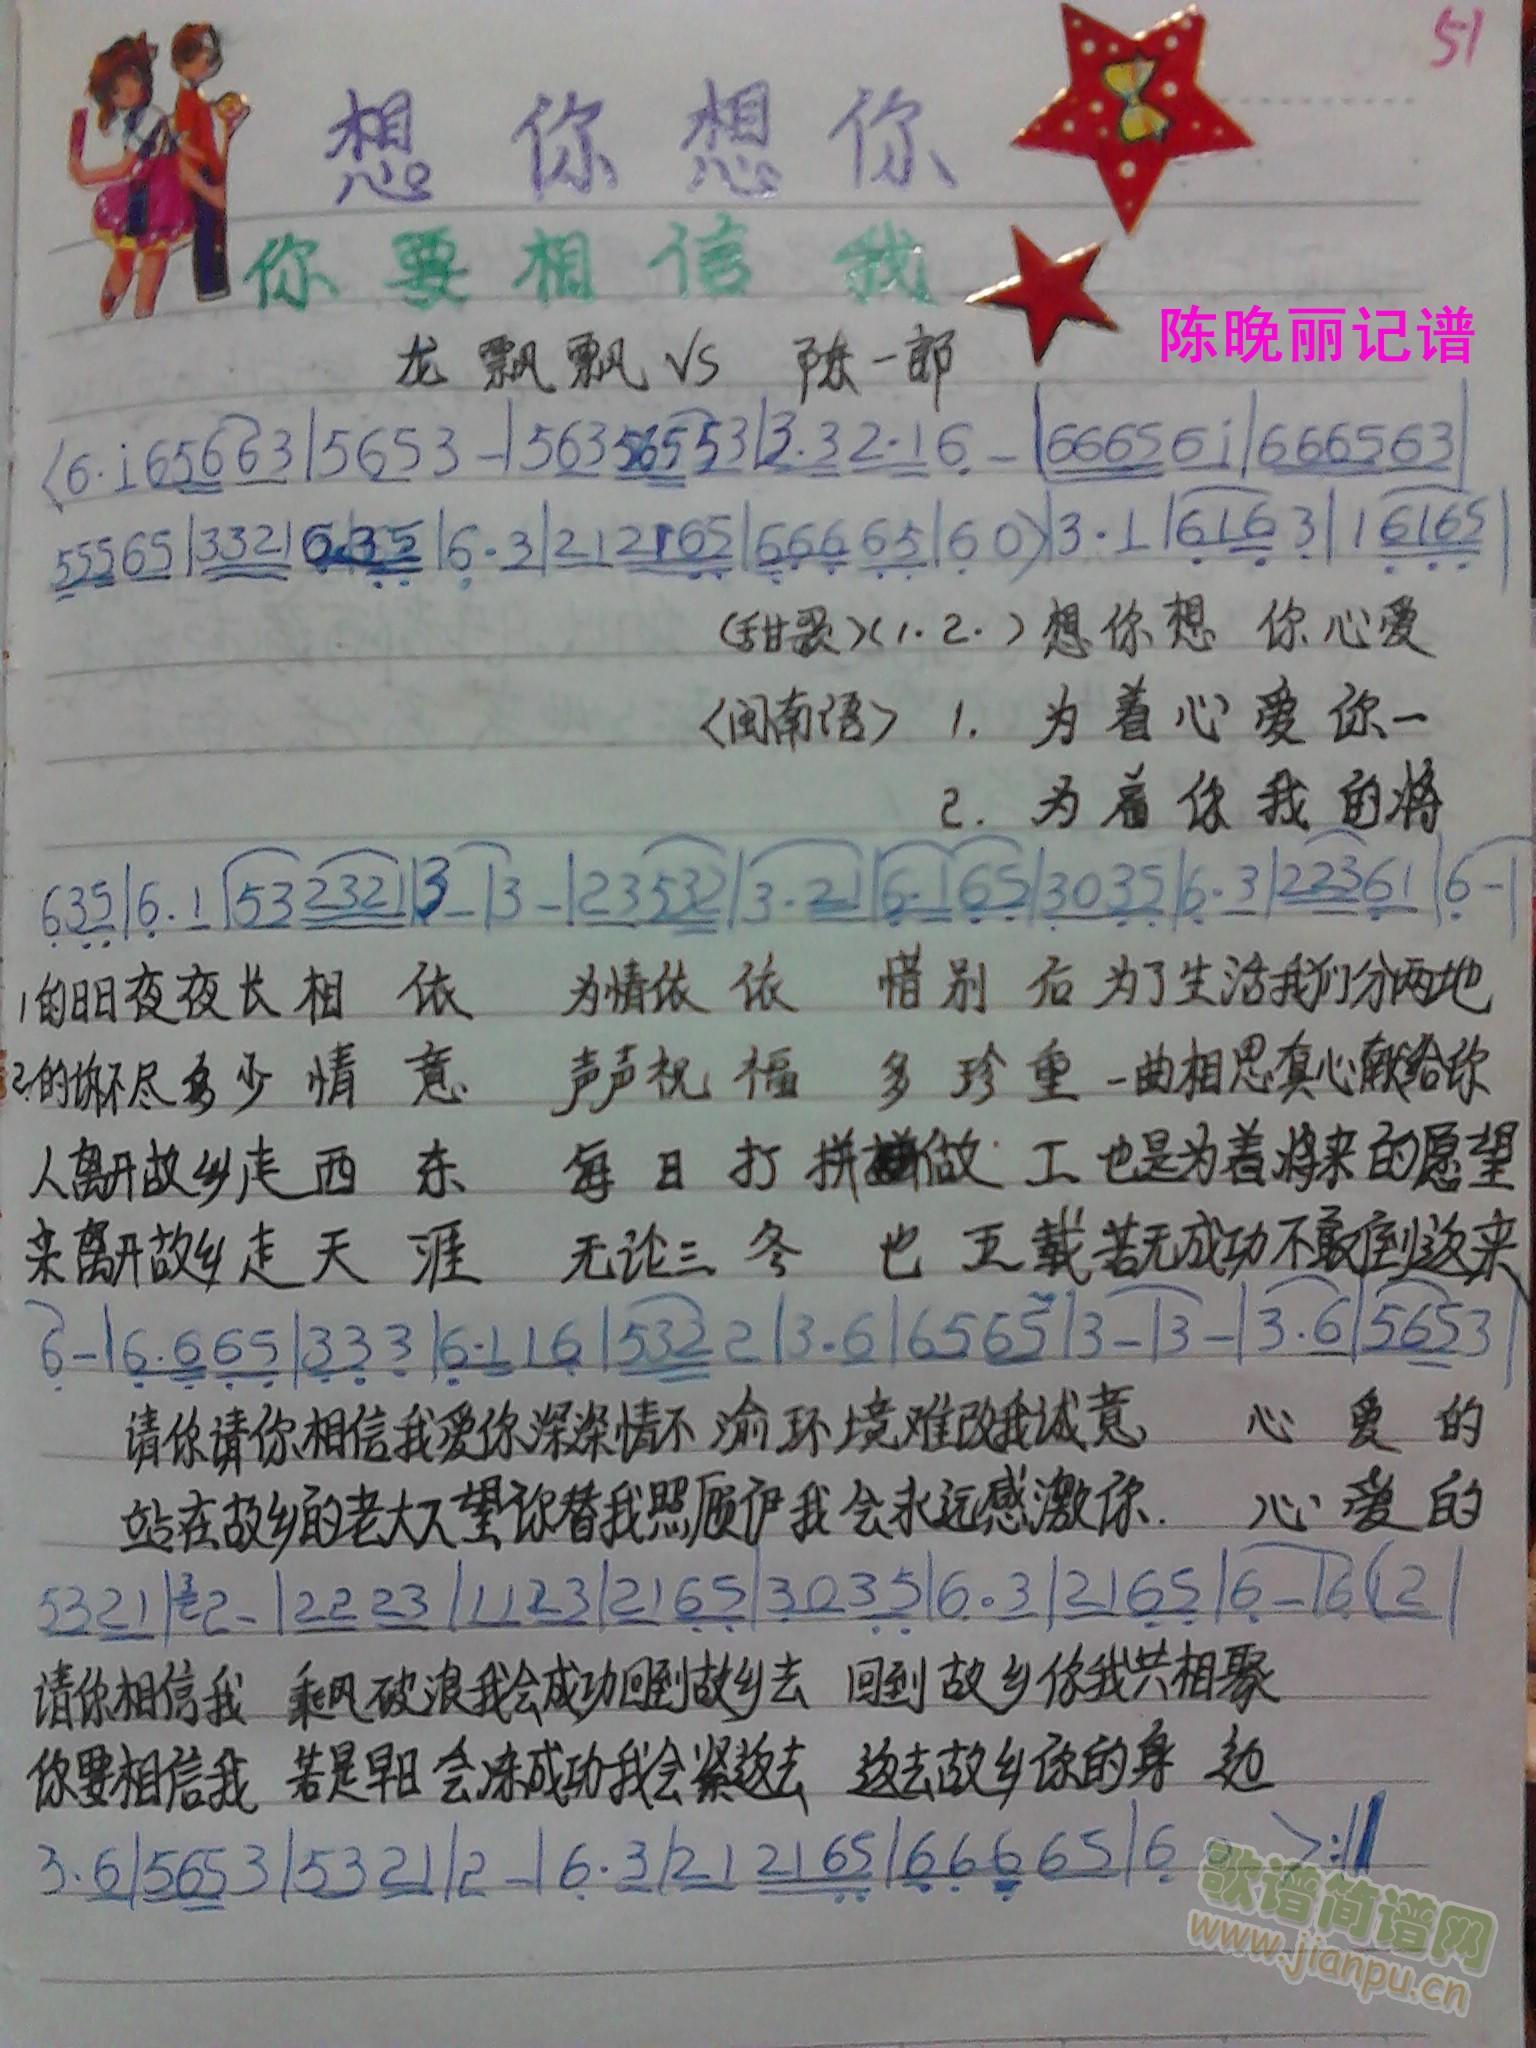 51
想你想你
你要相信我
龙飘飘 VS 陈一郎
陈晚丽记谱
(6·i65663|5653-|56356553|3·32·16-|66656i|666563|
55565|3321635|6·3|212165|66665|60)|3·1|6163|16165|
(甜歌)(1.2.)想你想 你心爱
<闽南语> 1. 为着心爱你一
2. 为着你我的将
635|6·1|532321|3-|3-|23532|3·21|6·165|3035|6·3|22361|6-|
1的日日夜夜长相 依 为情依 依 惜别 后为了生活我们分两地
2的 不尽多少情 意 声声祝 福 多珍重 一曲相思真心献给你
人离开故乡走西 东 每日打拼 做 工 也是为着将来的愿望
来离开故乡走天 涯 无论三冬 也 五载若无成功不敢倒返来
6-|6·665|333|6·116|5322|3·6|6565|3-|3-|3·6|5653|
请你请你相信我爱你深深情不渝环境难改我诚意 心爱的
站在故乡的老大人望你替我照顾伊我会永远感激你. 心爱的
5321|2-|2223|1123|2165|3035|6·3|2165|6-|6(12|
请你相信我 乘风破浪我会成功回到故乡去 回到故乡你我共相聚
你要相信我 若是早日会 成功我会紧返去 返去故乡你的身边
3·6|5653|5321|2-|6·3|212165|66665|6 >:||
歌谱简谱网
www.jianpu.cn